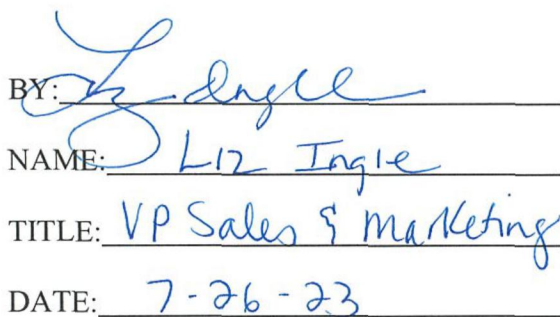 BY: Liz Ingle
NAME: Liz Ingle
TITLE: VP Sales & Marketing
DATE: 7-26-23